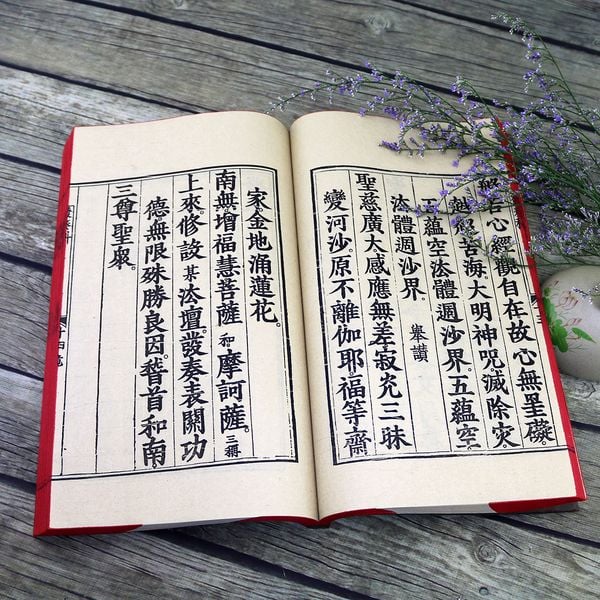 若心經觀自在故心無罣礙。
苦海。大明神咒滅除灾
五蘊空法體週沙界。五蘊空。
法體週沙界。 舉讚
聖慈廣大感應無差。寂光三昧
變河沙。原不離伽耶。福等齋
家金地涌蓮花。
南無增福慧菩薩 和 摩訶薩。三稱
上來。修設某法壇。發奏表開功
德無限殊勝良因。稽首和南
三尊聖衆。